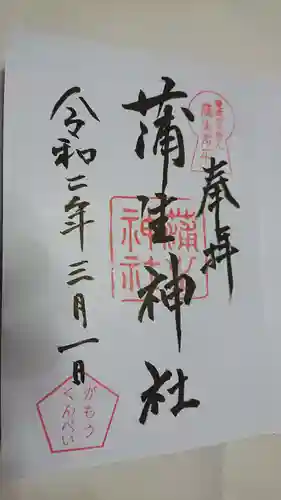 奉拝
蒲生神社
蒲生
神社
令和二年三月一日
がもう
くんぺい